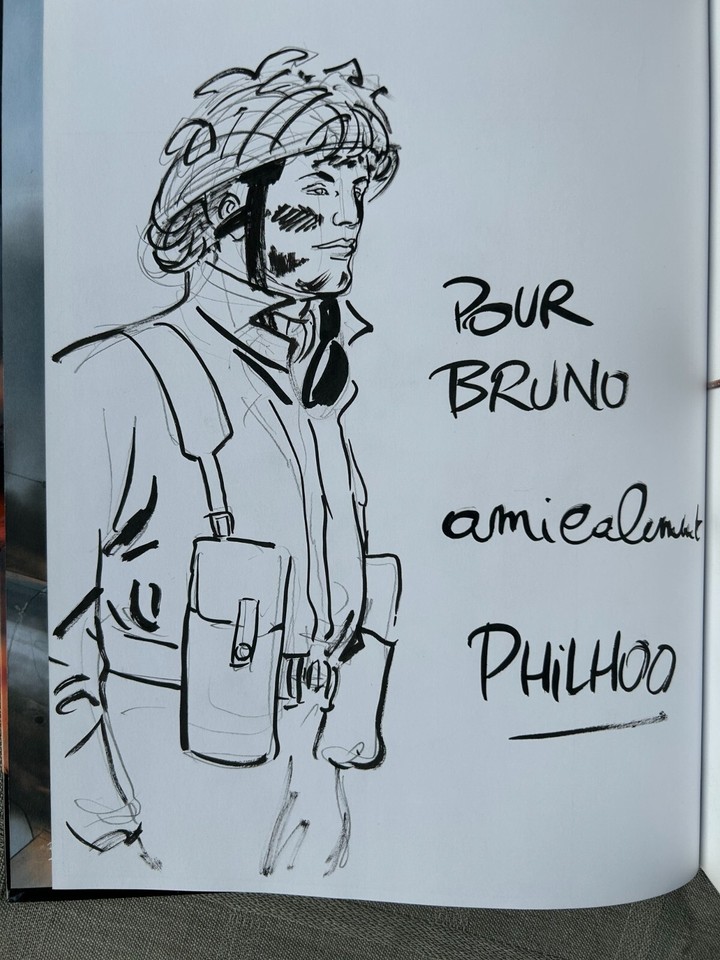 POUR
BRUNO
amicalement
PHiLHOO